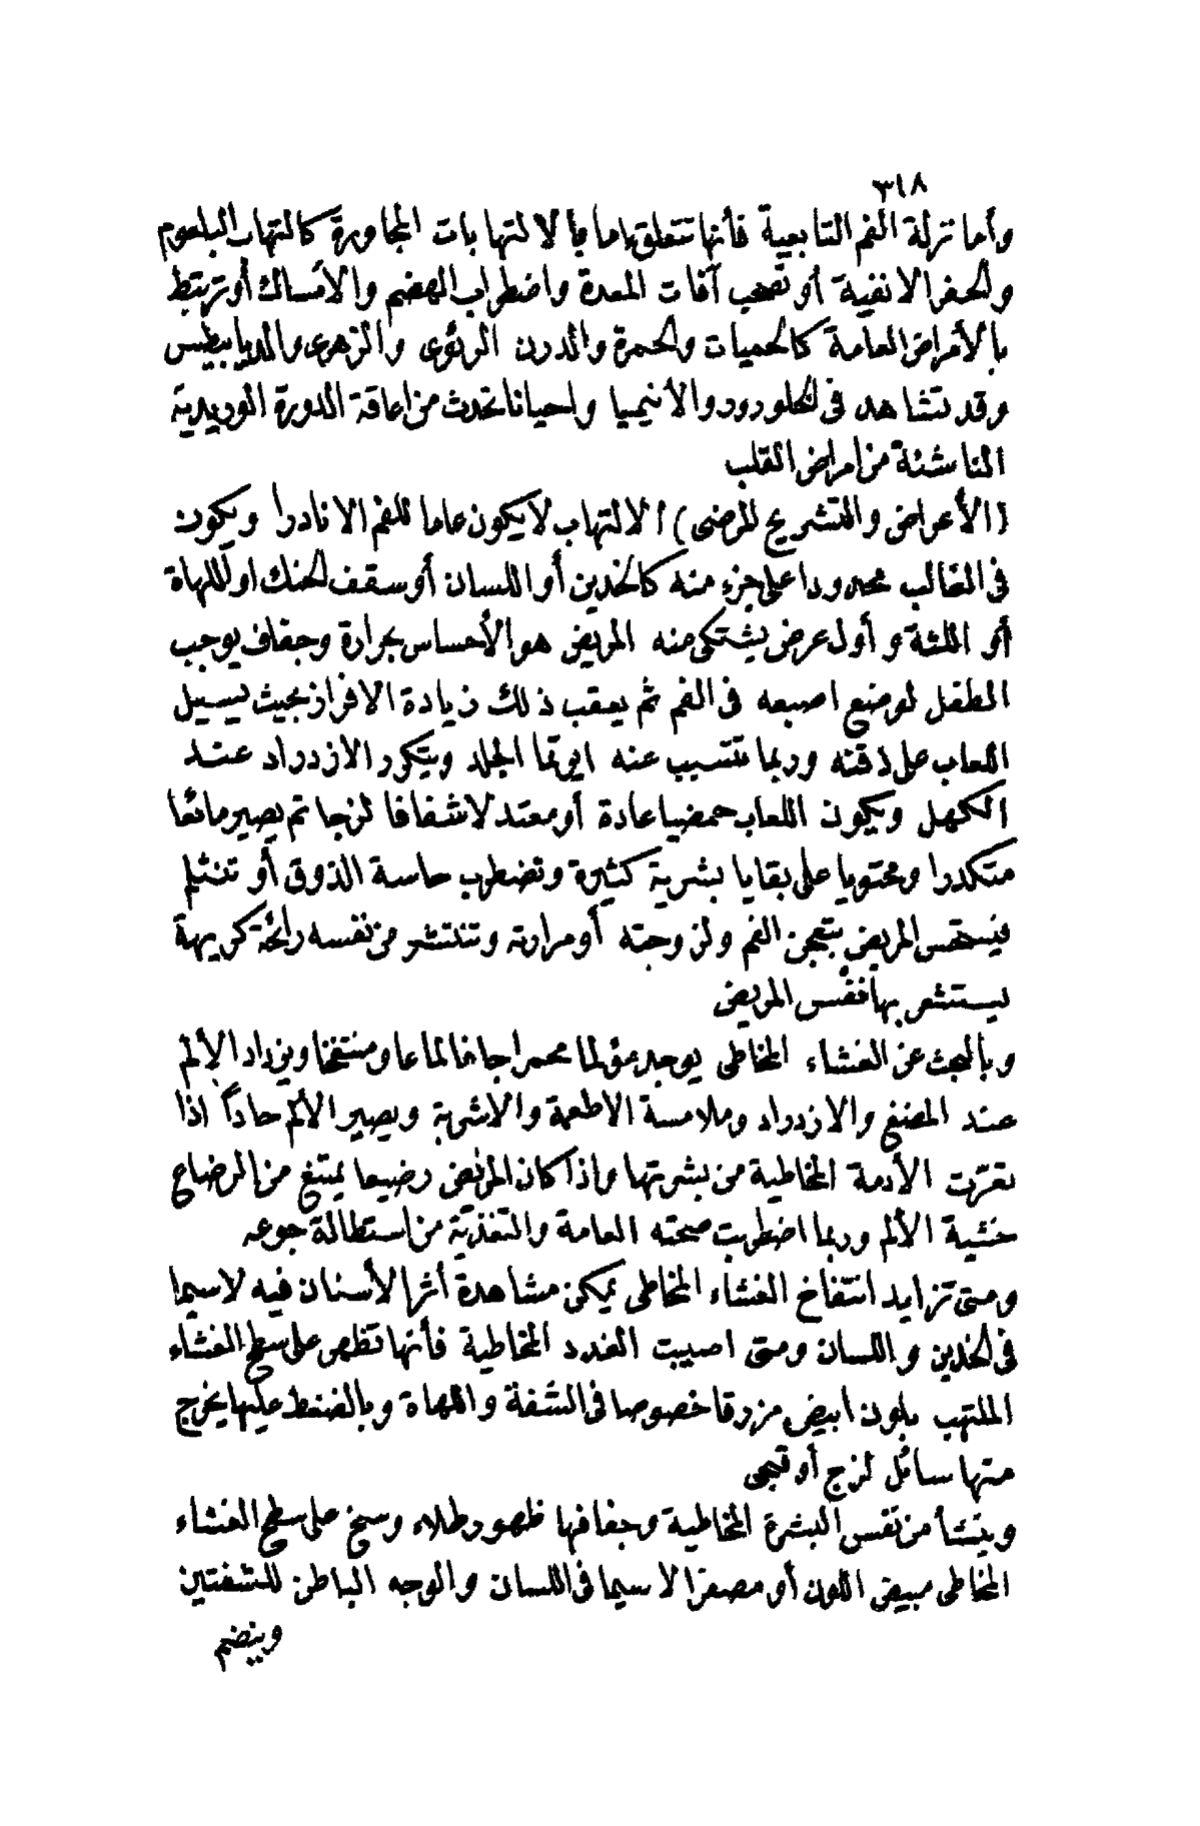 ٣١٨
وأما نزلة الفم التابعية فأنها تتعلق اما بالالتهابات المجاورة كالتهاب البلعوم
والحفر الانفية أو تصحب آفات المعدة واضطراب الهضم والأمساك أو ترتبط
بالأمراض العامة كالحميات والحمرة والدرن الرئوى والزهرى والديابيطس
وقد تشاهد فى الخلوروز والأنيميا واحيانا تحدث من اعاقة الدورة الوريدية
الناشئة من امراض القلب
(الأعراض والتشريح المرضى) الالتهاب لا يكون عاما للفم الا نادرا ويكون
فى الغالب محدودا على جزء منه كالخدين أو اللسان أو سقف الحنك او اللهاة
أو اللثة وأول عرض يشتكى منه المريض هو الأحساس بحرارة وجفاف يوجب
الطفل لوضع اصبعه فى الفم ثم يعقب ذلك زيادة الافراز بحيث يسيل
اللعاب على ذقنه وربما تتسبب عنه ايرتما الجلد ويتكرر الازدراد عند
الكهل ويكون اللعاب حمضيا عادة أو معتدلا شفافا لزجا ثم يصير مائعا
متكدرا ومحتويا على بقايا بشرية كثيرة وتضطرب حاسة الذوق أو تنثلم
فيستحس المريض بتعجن الفم ولزوجته أو مرارته وتنتشر من نفسه رائحة كريهة
يستشعر بها نفس المريض
وبالبحث عن الغشاء المخاطى يوجد مؤلما محمرا جافا لماعا ومنتفخا ويزداد الألم
عند المضغ والازدراد وملامسة الاطعمة والاشربة ويصير الألم حاداً اذا
تعرّت الأدمة المخاطية من بشرتها واذا كان المريض رضيعا يمتنع من الرضاع
خشية الألم وربما اضطربت صحته العامة والتغذية من استطالة جوعه
ومتى تزايد انتفاخ الغشاء المخاطى يمكن مشاهدة أثر الأسنان فيه لاسيما
فى الخدين واللسان ومتى اصيبت الغدد المخاطية فأنها تظهر على سطح الغشاء
الملتهب بلون ابيض مزرقا خصوصا فى الشفة واللهاة وبالضغط عليها يخرج
منها سائل لزج أو قيحى
وينشأ من نفس البشرة المخاطية وجفافها ظهور طلاء وسخ على سطح الغشاء
المخاطى مبيض اللون أو مصفرا لاسيما فى اللسان والوجه الباطن للشفتين
وينضم